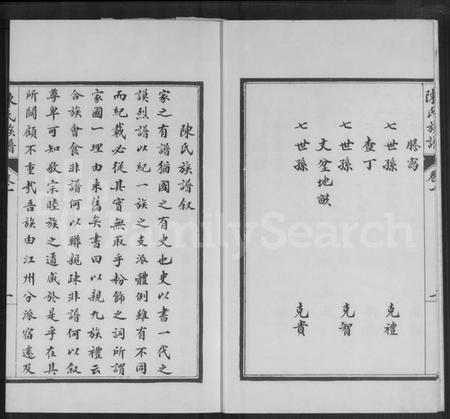 陳氏族譜 卷
謄寫
七世孫 克禮
查丁
七世孫 克智
丈塋地畝
七世孫 克貴
陳氏族譜叙
家之有譜猶國之有史也史以書一代之
謨烈譜以紀一族之支派體例雖有不同
而紀載必從其實無取乎粉飾之詞所謂
家國一理由来舊矣書曰以親九族禮云
合族會食非譜何以聯親踈非譜何以叙
尊卑可知敦宗睦族之道咸於是乎在其
所關顧不重哉吾族由江州分派宿遷及
陳氏族譜 卷一
一
FamilySearch